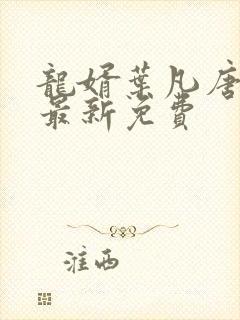 龍婿葉凡唐
最新免費
淮西